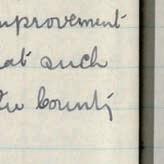 improvement
at such
the County